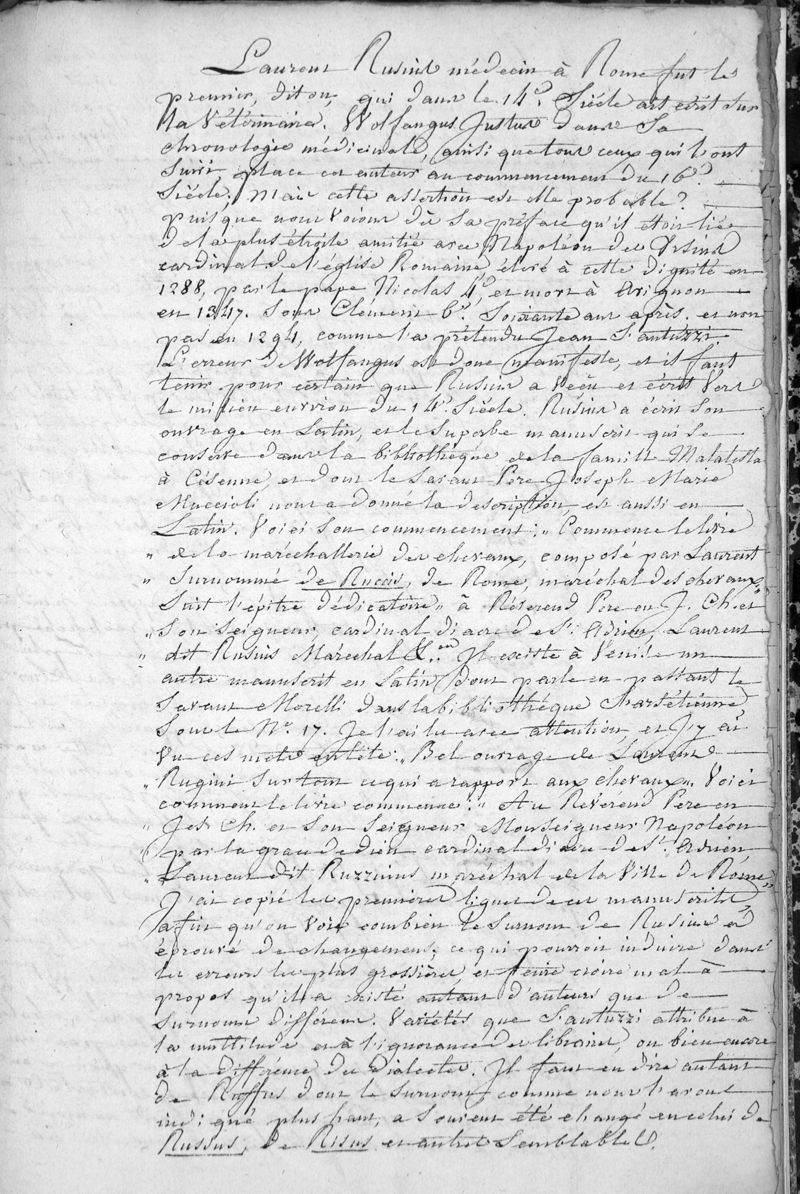 Laurent Rusius médecin à Rome fut le
premier, dit on, qui dans le 14e. Siécle ait écrit sur
la Vétérinaire. Wolfangus Justus dans sa
chronologie médicinale, ainsi que tous ceux qui l'ont
suivi, place cet auteur au commencement du 16e.
Siécle; Mais cette assertion est elle probable?
puisque nous voions de sa préface qu'il étoit lié
de la plus étroite amitié avec Napoléon des Ursins
cardinal de l'église Romaine, élevé à cette dignité en
1288, par le pape Nicolas 4e, et mort à Avignon
en 1347. Sous Clément 6e. Soixante ans après. et non
pas en 1294, comme l'a prétendu Jean Santuzzi.
L'erreur de Wolfangus est donc manifeste, et il faut
tenir pour certain que Rusius a vécu et écrit vers
le milieu environ du 14e. Siécle. Rusius a écrit son
ouvrage en Latin, et le superbe manuscrit qui se
conserve dans la bibliothèque de la famille Malatesta
à Césenne, et dont le savant Pere Joseph Marie
Muccioli nous a donné la description, est aussi en
Latin. Voici son commencement: „ Commence le livre
„ de la maréchallerie des chevaux, composé par Laurent
„ surnommé de Ruccis, de Rome, maréchal des chevaux.
Suit l'épitre dédicatoire „ à Révérend Pere en J. Ch. et
„ son seigneur, cardinal diacre de St. Adrien, Laurent
„ dit Rusius Maréchal &ca. Il existe à Venise un
autre manuscrit en Latin dont parle en passant le
savant Morelli dans la bibliothéque
sous le No. 17. Je l'ai lu avec attention, et J'y ai
vu ces mots en tête: „ Bel ouvrage de Laurent
„ Rugini sur tout ce qui a rapport aux chevaux „. Voici
comment le livre commence: „ Au Révérend Pere en
„ Jes. Ch. et son seigneur Monseigneur Napoléon
„ par la grace de dieu cardinal diacre de St. Adrien
„ Laurent dit Ruzzinus maréchal de la Ville de Rome „
J'ai copié les premieres lignes de ces manuscrits,
afin qu'on voie combien le surnom de Rusius a
éprouvé de changemens; ce qui pourroit induire dans
les erreurs les plus grossières et faire croire mal à
propos qu'il a existé autant d'auteurs que de
surnoms différens. Variétés que Santuzzi attribue à
la multitude et à l'ignorance des libraires, ou bien encore
à la différence des dialectes. Il faut en dire autant
de Ruffus dont le surnom, comme nous l'avons
indiqué plus haut, a souvent été changé en celui de
Russus, de Risus et autres semblables.